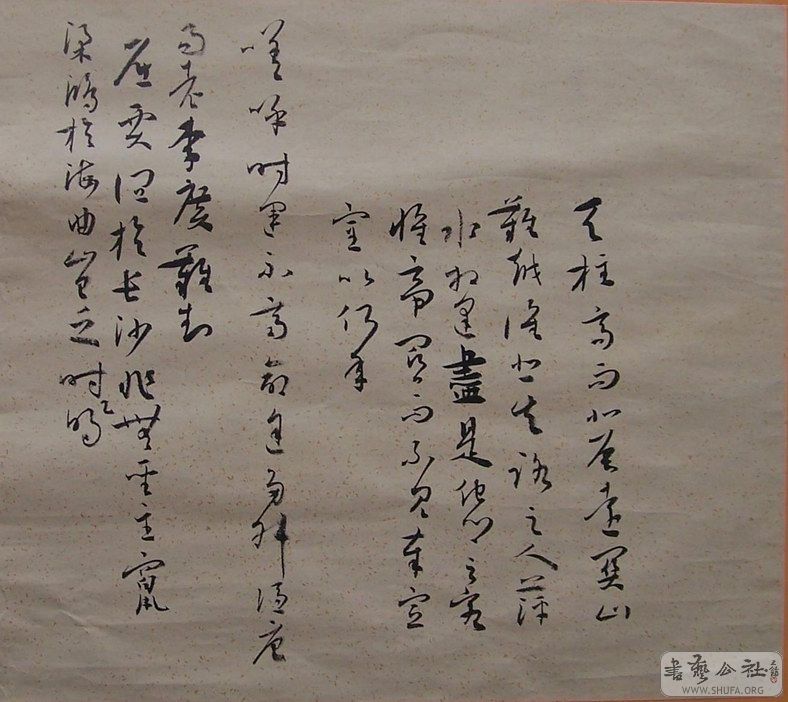 天柱高而北辰遠關山
難越誰悲失路之人萍
水相逢盡是他鄉之客
懷帝閽而不見奉宣
室以何年
嗟呼時運不齊命途多舛馮唐
易老李廣難封
屈賈誼於長沙非無聖主竄
梁鴻於海曲豈乏時明
書藝公社
WWW.SHUFA.ORG